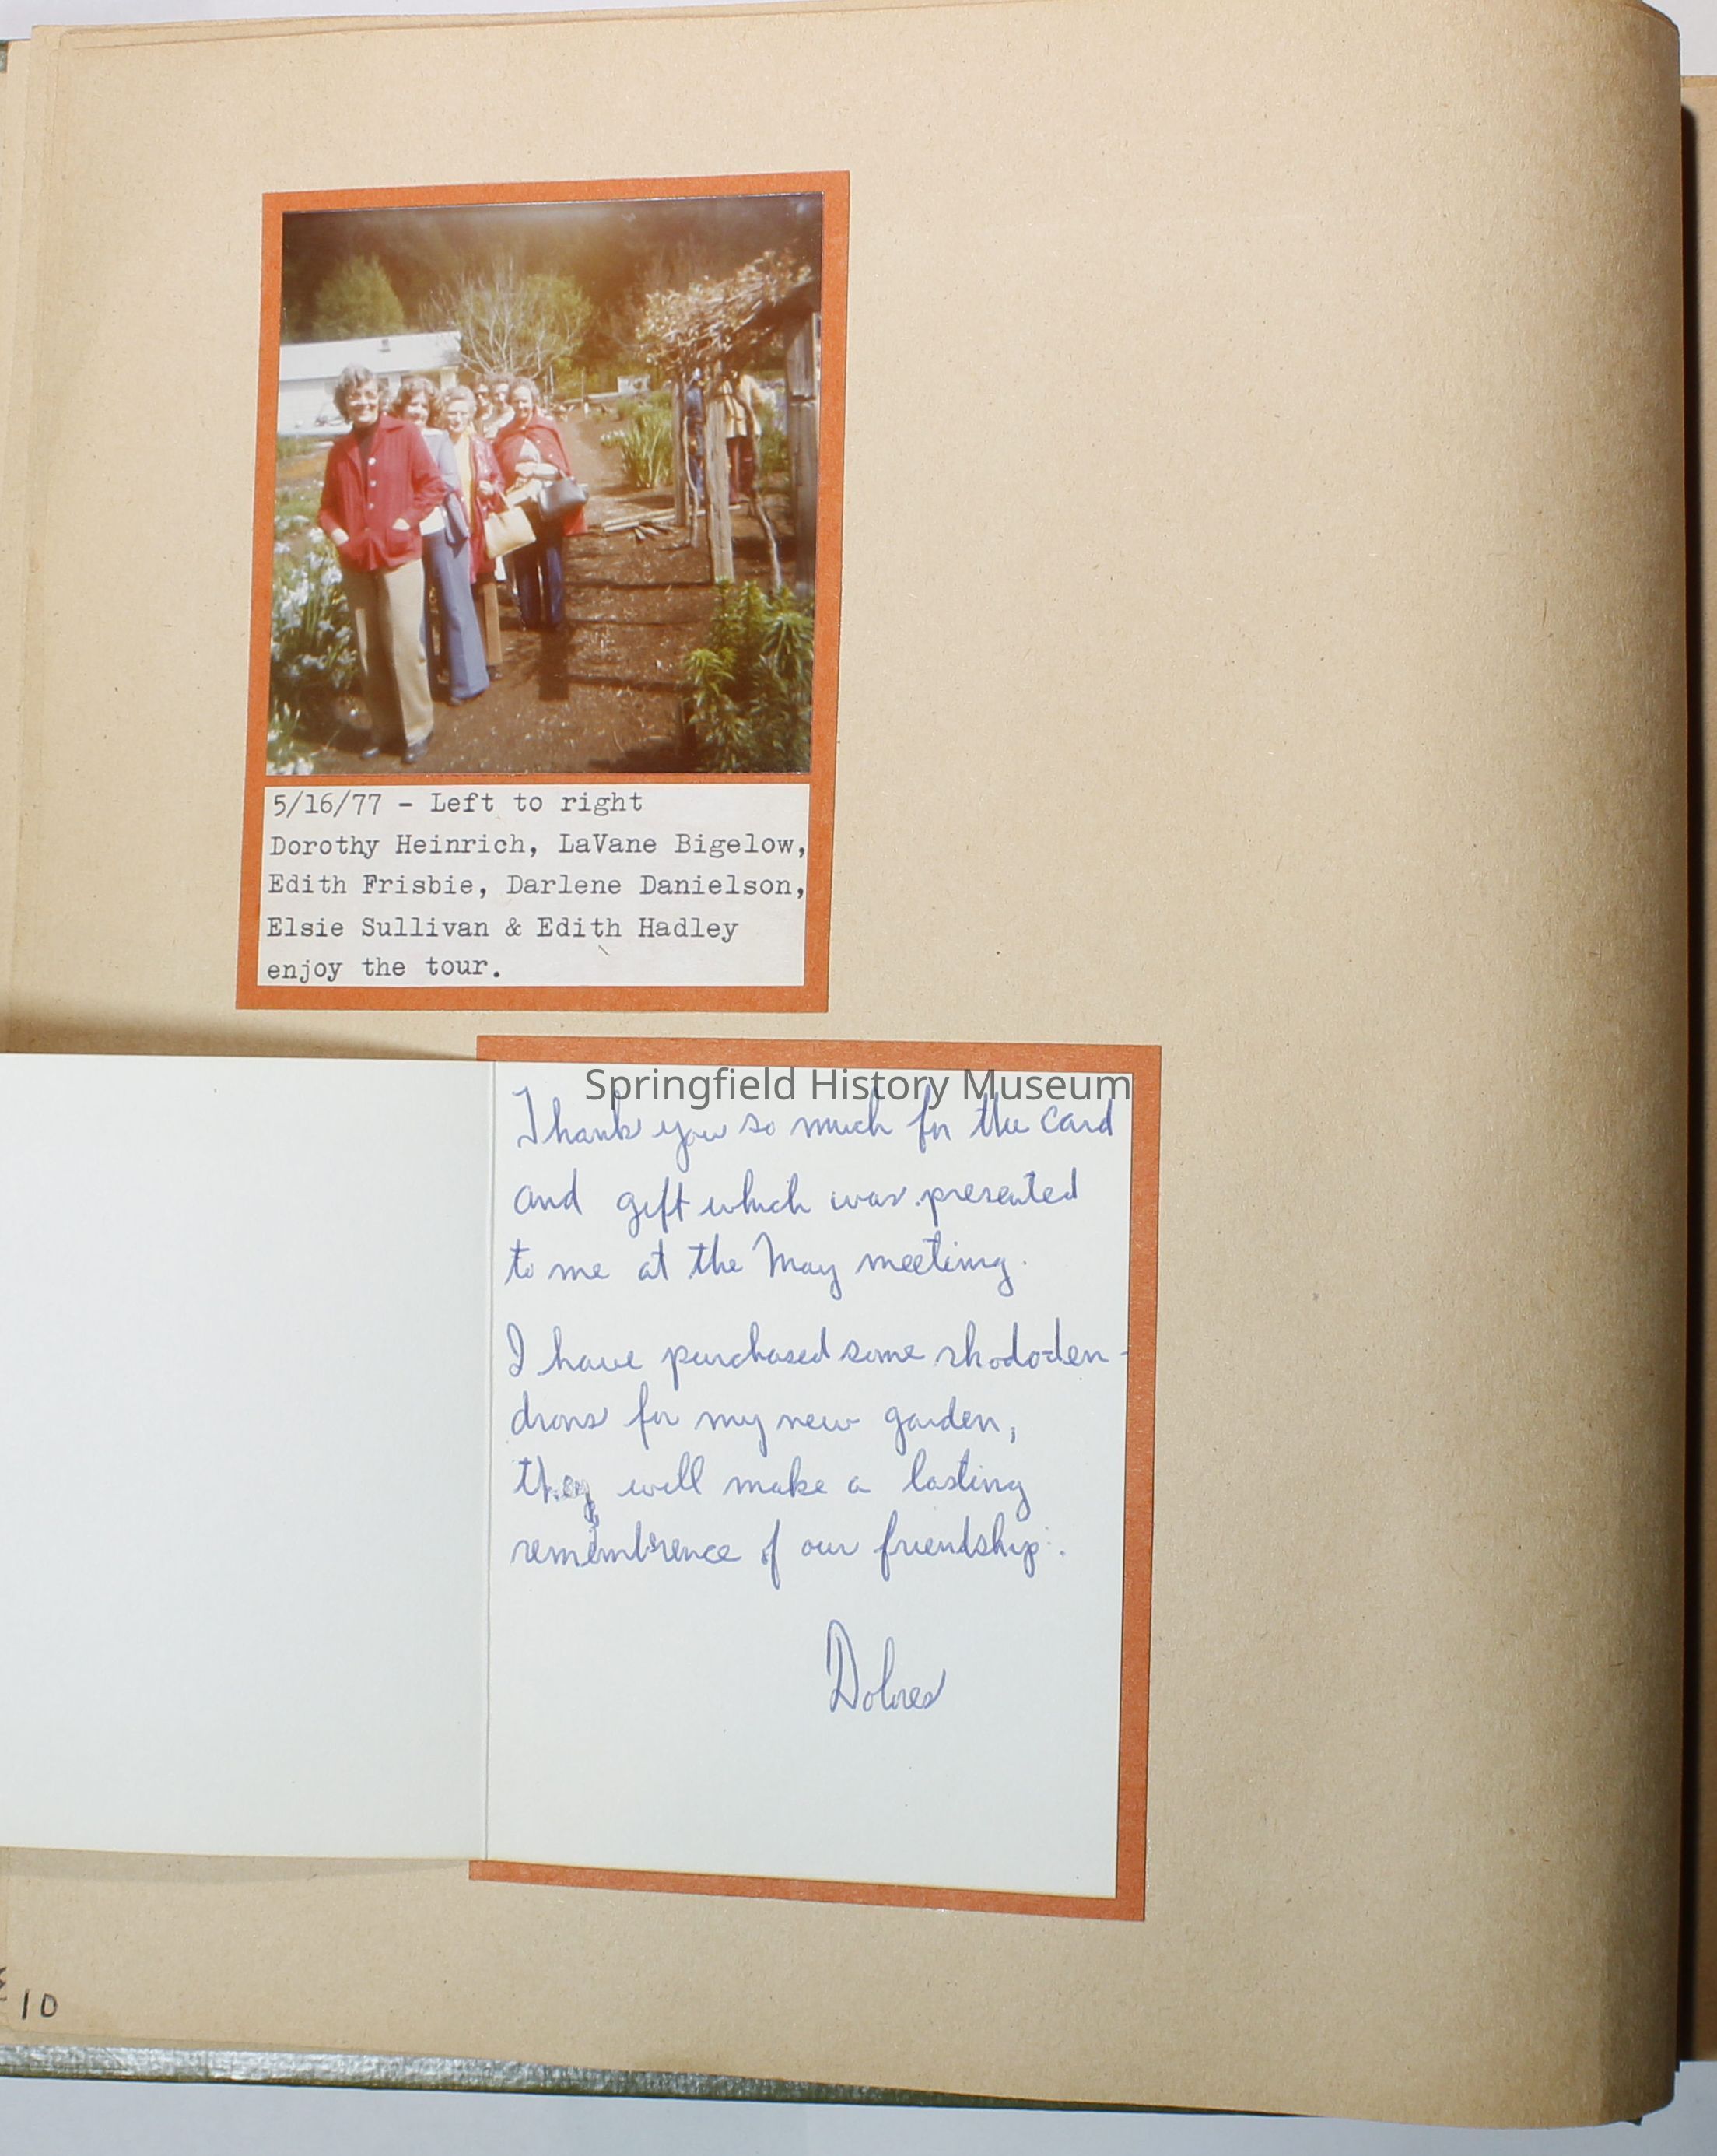 5/16/77 - Left to right
Dorothy Heinrich, LaVane Bigelow,
Edith Frisbie, Darlene Danielson,
Elsie Sullivan & Edith Hadley
enjoy the tour.
Springfield History Museum
Thank you so much for the card
and gift which was presented
to me at the May meeting.
I have purchased some rhododen-
drons for my new garden,
they will make a lasting
remembrence of our friendship.
Dolores
10